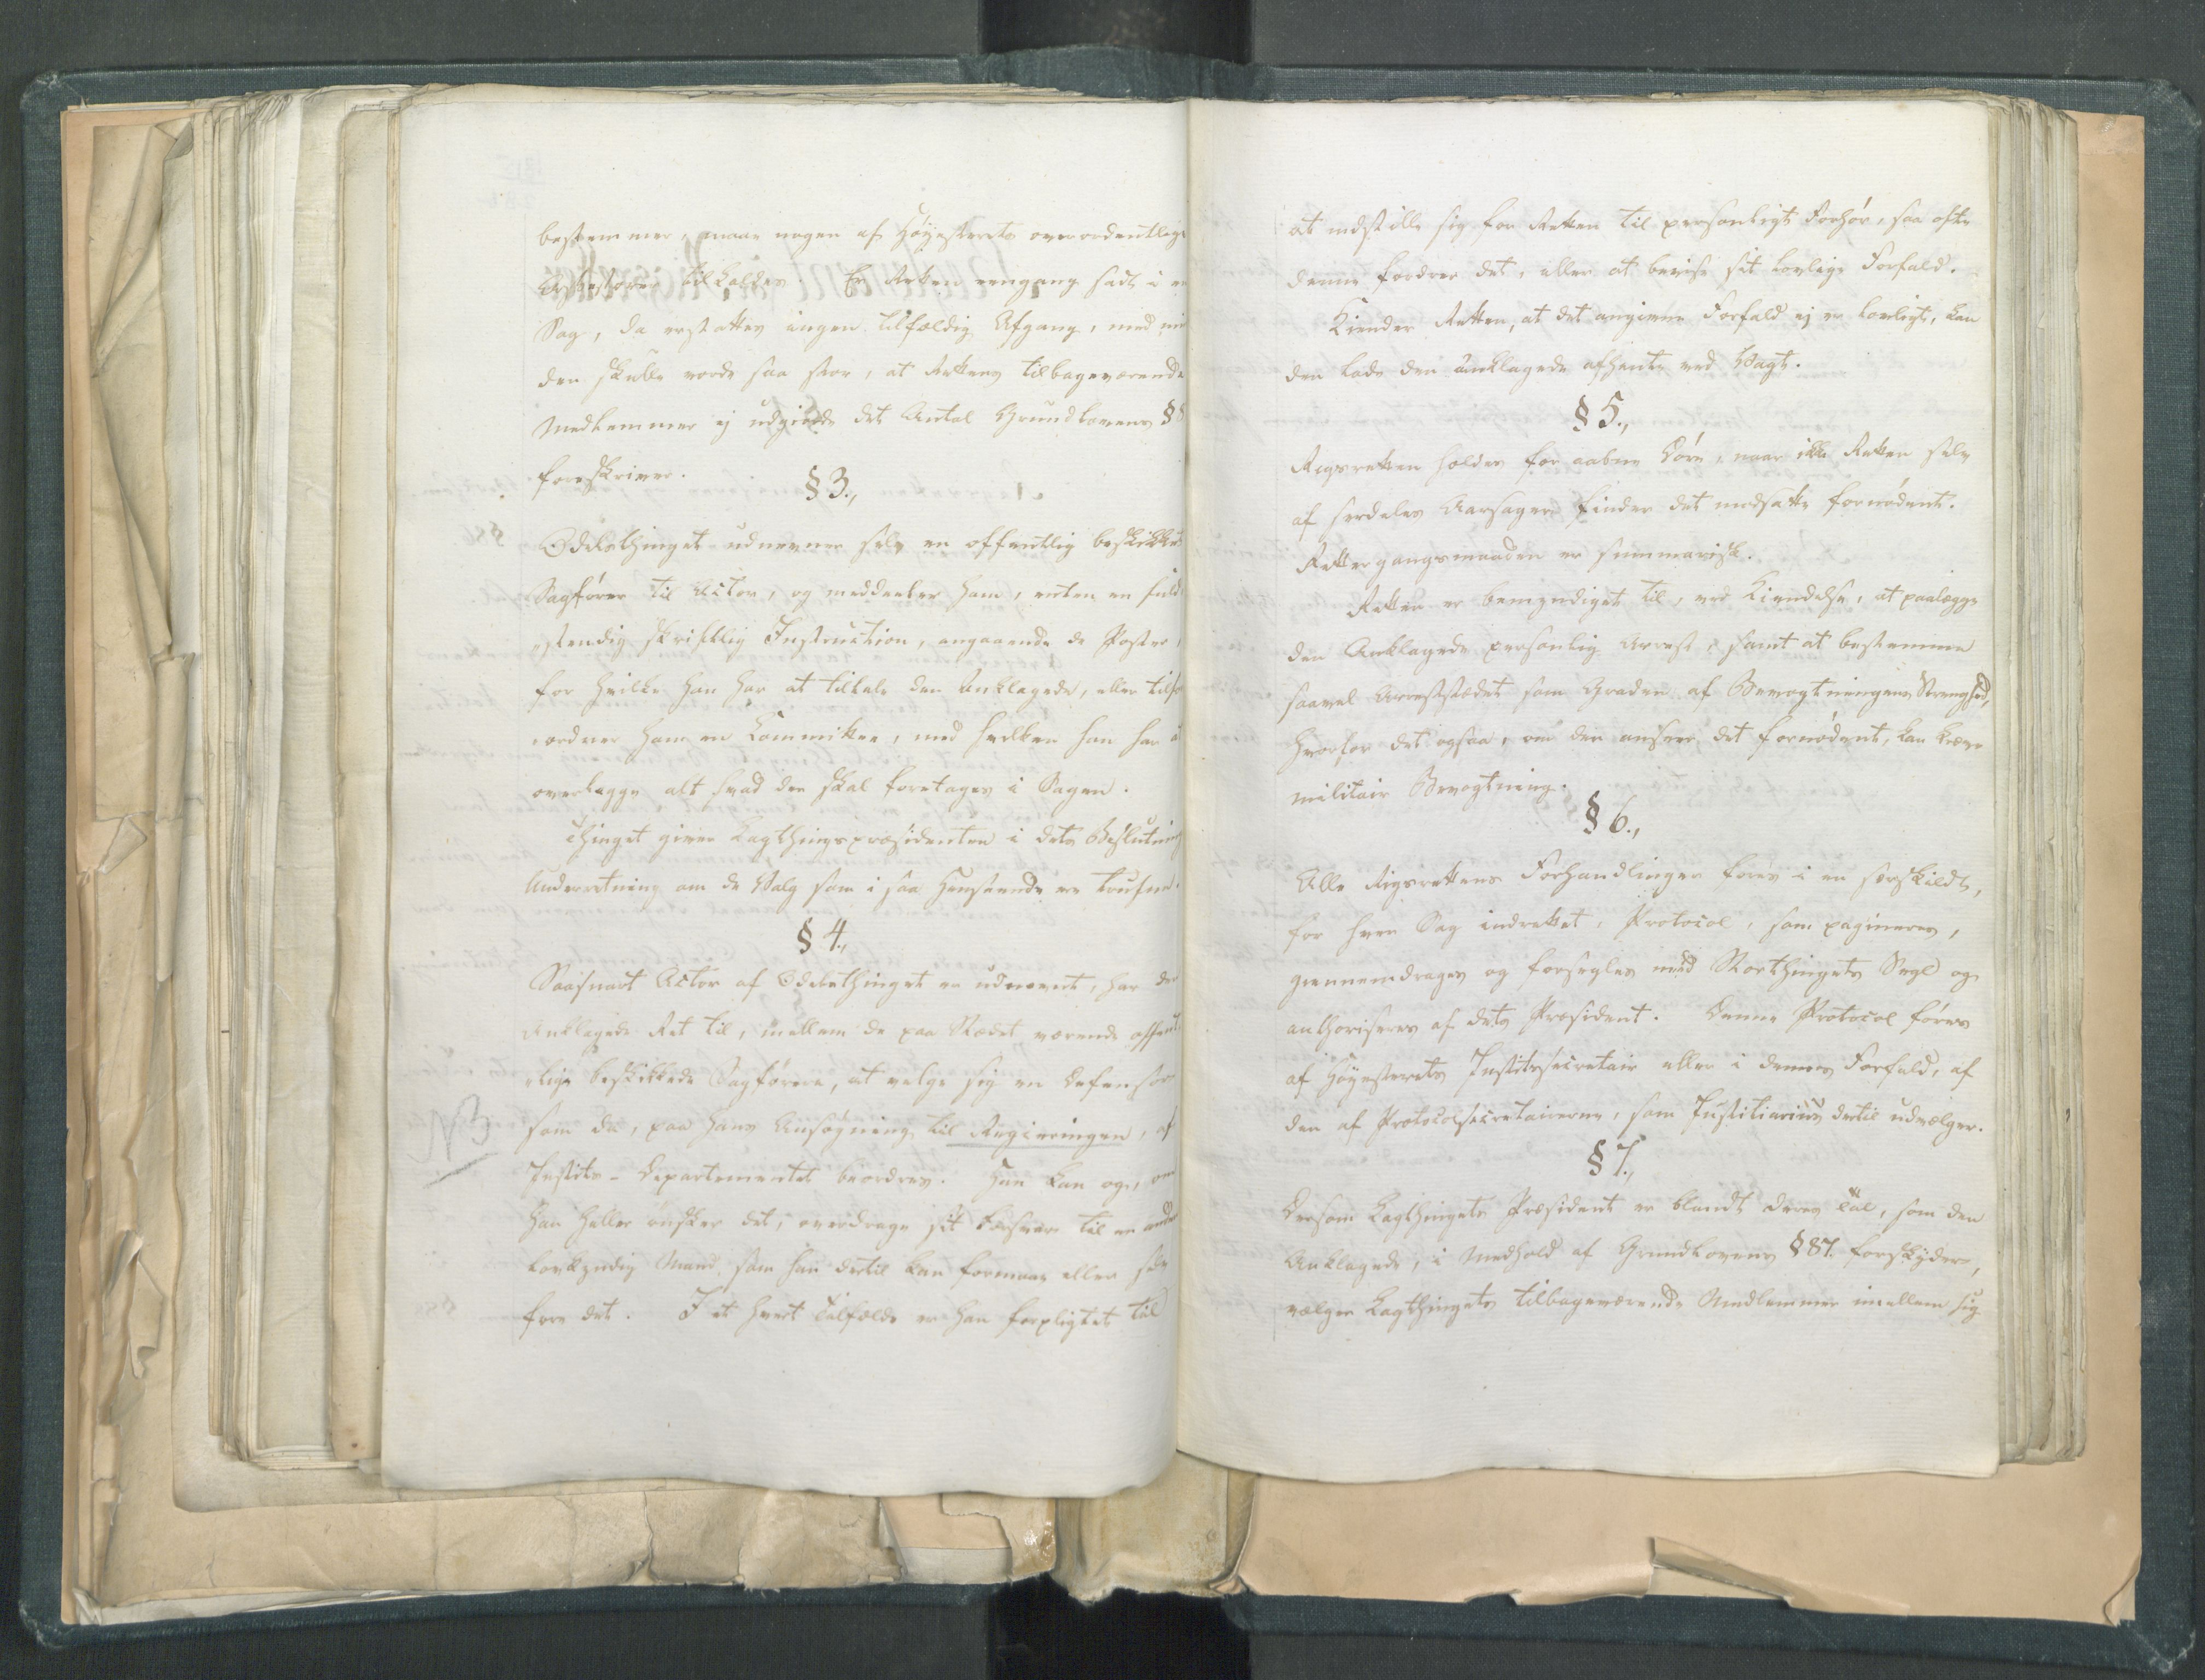 bestemmer, maae nogen af Høyesterets overordentlige
Assessorer tilkaldes. Er Retten eengang sadt i en
Sag, da erstattes ingen tilfældig Afgang, med min
den skulle vorde saa stor, at Rettens tilbageværende
Medlemmer ej udgiorde det Antal Grundlovens §
foreskriver.
§ 3.,
Odelsthinget udnevner selv en offentlig beskikket
Sagfører til Actor, og meddeeler ham, enten en fuld-
stendig skriftlig Instruction, angaaende de Poster,
for hvilke han har at tiltale den Anklagede, eller tilfor-
ordner ham en Committee, med hvilken han har a
overlægge alt hvad der skal foretages i Sagen.
Thinget giver Lagthingspræsidenten i dets Beslutning
Underretning om de Valg som i saa Henseende ere trufne.
§ 4.,
Saasnart Actor af Odelsthinget er udnevnt, har den
Anklagede Ret til, mellem de paa Stædet værende offent-
lige beskikkede Sagførere, at velge sig en Defensor
NB
som da, paa hans Ansøgning til Regieringen, af
Justits-Departementet beordres. Han kan og, om
han heller ønsker det, overdrage sit Forsvar til en anden
lovkyndig Mand som han dertil kan formaae eller selv
føre det. I et hvert Tilfælde er han forpligtet til
at indstille sig for Retten til personligt Forhør, saa ofte
denne fordrer det, eller at bevise sit lovlige Forfald.
Kiender Retten, at det angivne Forfald ej er lovligt, kan
den lade den Anklagede afhente ved Vagt.
§ 5.,
Rigsretten holdes for aabne Døre, naar ikke Retten selv
af serdeles Aarsager finder det modsatte fornødent.
Rettergangsmaaden er summarisk.
Retten er bemyndiget til, ved Kiendelse, at paalægge
den Anklagede personlig Arrest, samt at bestemme
saavel Arreststædet som Graden af Bevogtningens Strenghed,
hvorfor det ogsaa, om den anseer det fornødent, kan kræve
militair Bevogtning.
§ 6.,
Alle Rigsrettens Forhandlinger føres i en serskildt,
for hver Sag indrettet, Protocol, som pagineres,
giennemdrages og forsegles med Storthingets Segl og
authoriseres af dets Præsident. Denne Protocol føres
af Høyesterets Justitssecretair eller i dennes Forfald, af
den af Protocolsecretairerne, som Justitiarius dertil udvælger.
§ 7.,
Dersom Lagthingets Præsident er blandt deres Tal, som den
Anklagede, i Medhold af Grundlovens § 87. forskyder,
vælger Lagthingets tilbageværende Medlemmer imellem sig